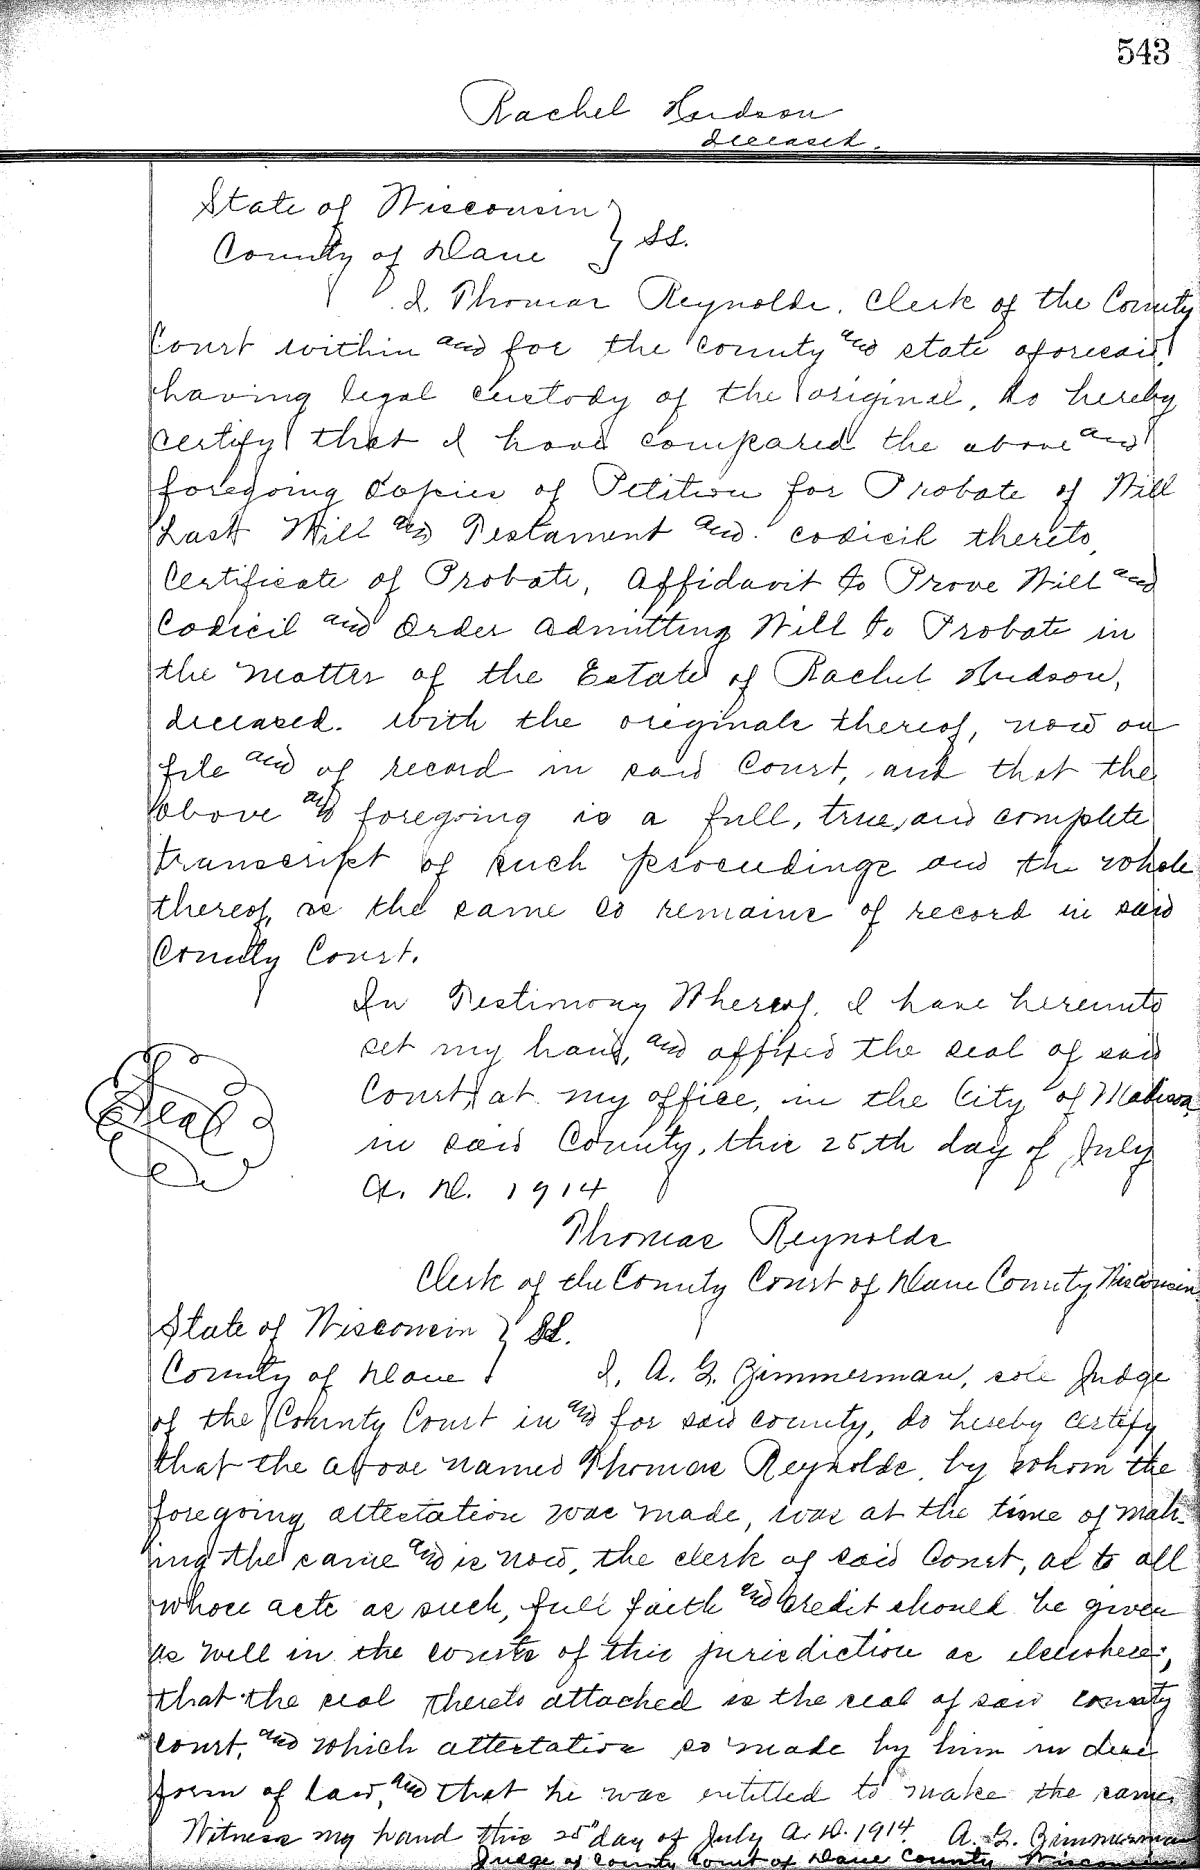 543
Rachel Hudson
deceased.
State of Wisconsin } SS.
County of Dane
I, Thomas Reynolds, Clerk of the County
Court within and for the county and state aforesaid,
having legal custody of the original, do hereby
certify that I have compared the above and
foregoing copies of Petition for Probate of Will
Last Will and Testament and codicil thereto,
Certificate of Probate, Affidavit to Prove Will and
Codicil and Order Admitting Will to Probate in
the matter of the Estate of Rachel Hudson,
deceased. with the originals thereof, now on
file and of record in said Court, and that the
above and foregoing is a full, true, and complete
transcript of such proceedings and the whole
thereof, as the same so remains of record in said
County Court.
In Testimony Whereof, I have hereunto
set my hand, and affixed the seal of said
Seal
Court, at my office, in the City of Madison,
in said County, this 25th day of July
A. D. 1914
Thomas Reynolds
Clerk of the County Court of Dane County Wisconsin.
State of Wisconsin } SS.
County of Dane I, A. G. Zimmerman, sole Judge
of the County Court in and for said county, do hereby certify
that the above named Thomas Reynolds, by whom the
foregoing attestation was made, was at the time of mak-
ing the same and is now, the clerk of said Court, as to all
whose acts as such, full faith and credit should be given
as well in the courts of this jurisdiction as elsewhere;
that the seal thereto attached is the seal of said county
court, and which attestation so made by him in due
form of law, and that he was entitled to make the same.
Witness my hand this 25" day of July A. D. 1914. A. G. Zimmerman
Judge of County Court of Dane County Wisconsin